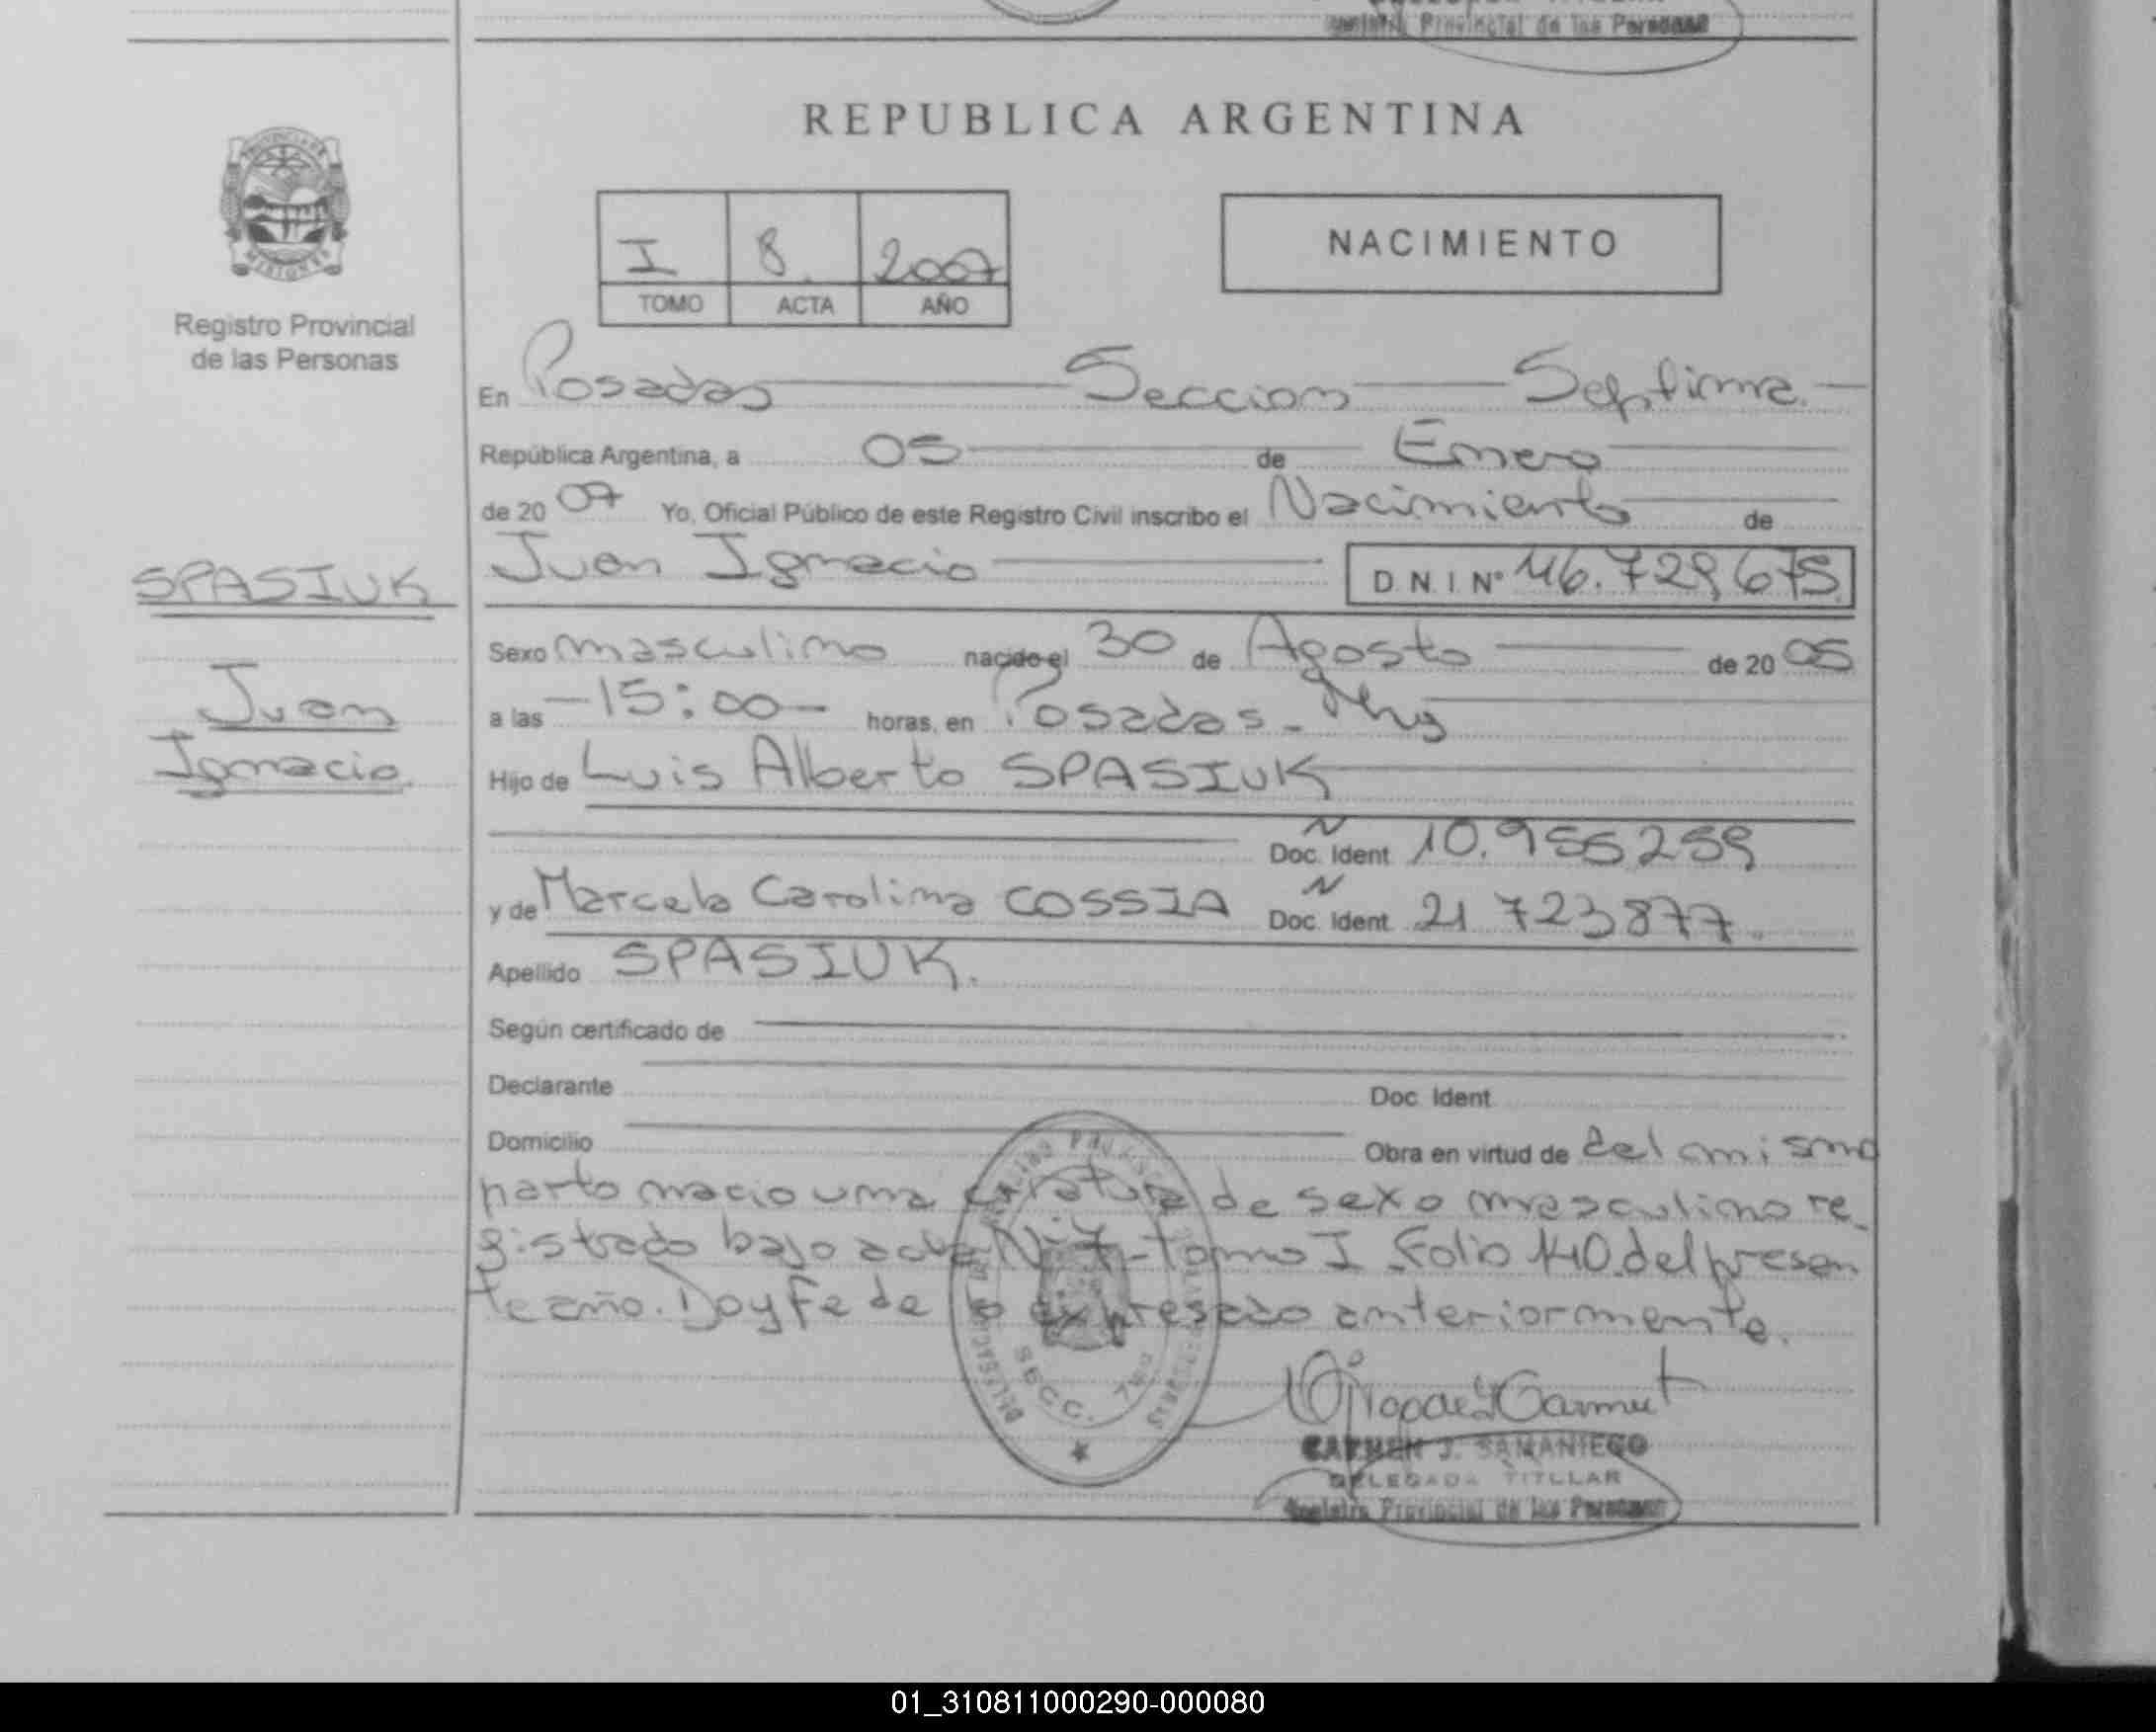 Registro Provincial de las Personas
REPUBLICA ARGENTINA
PROVINCIA DE
MISIONES
I 8 2007
TOMO ACTA AÑO
NACIMIENTO
Registro Provincial
de las Personas
En Posadas Seccion Septima.
República Argentina, a 05 de Enero
de 20 07 Yo, Oficial Público de este Registro Civil inscribo el Nacimiento de
SPASIUK
Juan Ignacio D.N.I. Nº 46.729675
Sexo masculino nacido el 30 de Agosto de 20 05
Juan
a las -15:00- horas, en Posadas - Mns
Ignacio.
Hijo de Luis Alberto SPASIUK
Doc. Ident 10.955259
y de Marcela Carolina COSSIA Doc. Ident. 21 723877.
Apellido SPASIUK.
Según certificado de
Declarante Doc. Ident.
Domicilio Obra en virtud de del mismo
parto nacio una criatura de sexo masculino re-
gistrado bajo acta Nº 7- tomo I Folio 140 del presen
te año. Doy fe de lo expresado anteriormente.
SECC. 7ma
CARMEN J. SAMANIEGO
DELEGADA TITULAR
Registro Provincial de las Personas
01_310811000290-000080